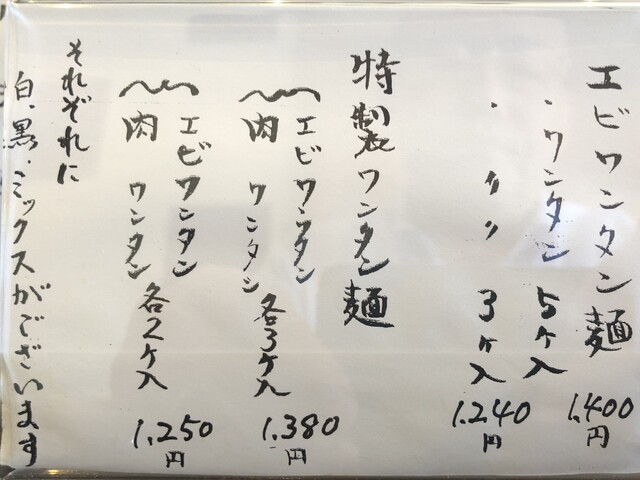 エビワンタン麺
・ワンタン 5ヶ入 1,400円
・ 〃 3ヶ入 1,240円
特製ワンタン麺
エビワンタン
肉ワンタン 各3ヶ入 1,380円
エビワンタン
肉ワンタン 各2ケ入 1,250円
それぞれに
白・黒・ミックスがございます